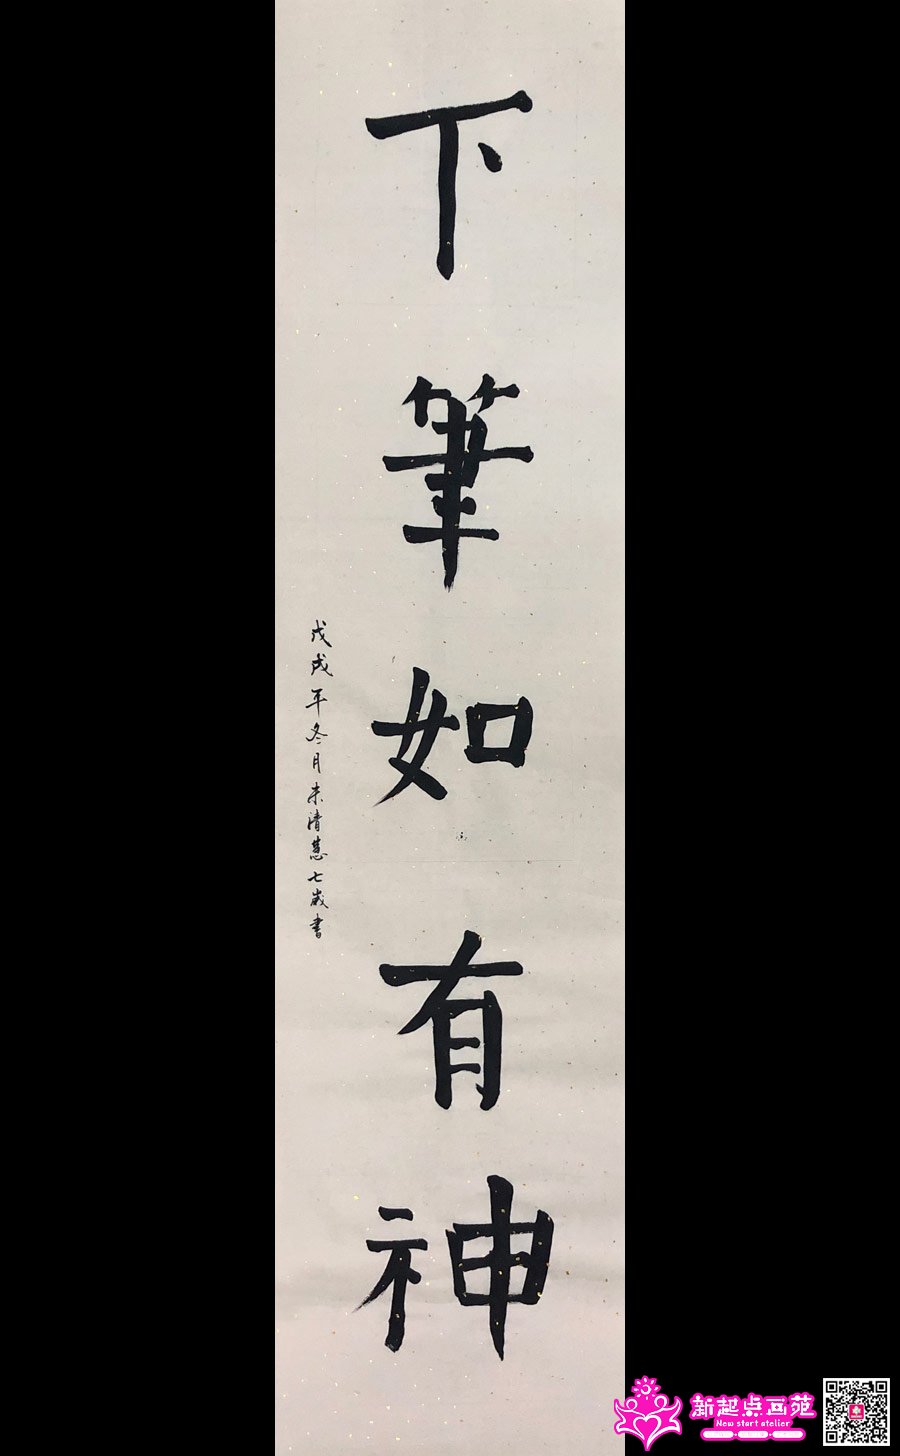 下筆如有神
戊戌年冬月朱清慧七歲書
新起点画苑
New start atelier